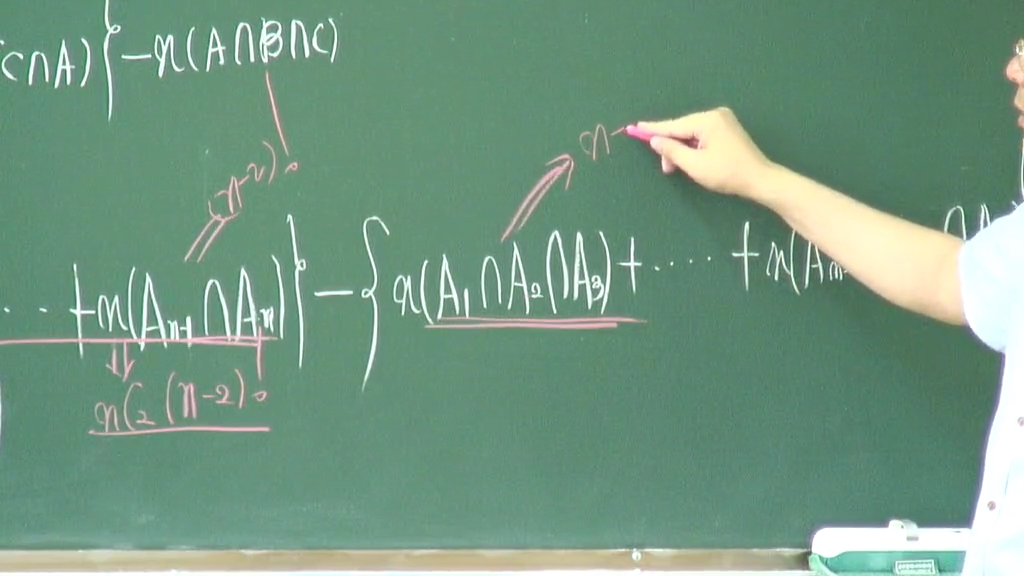 C∩A)} − n(A∩B∩C)
(n−2)!
n −
⋯ + n(Aₙ₋₁∩Aₙ)} − {n(A₁∩A₂∩A₃) + ⋯⋯ + n(A
ₙC₂ (n−2)!